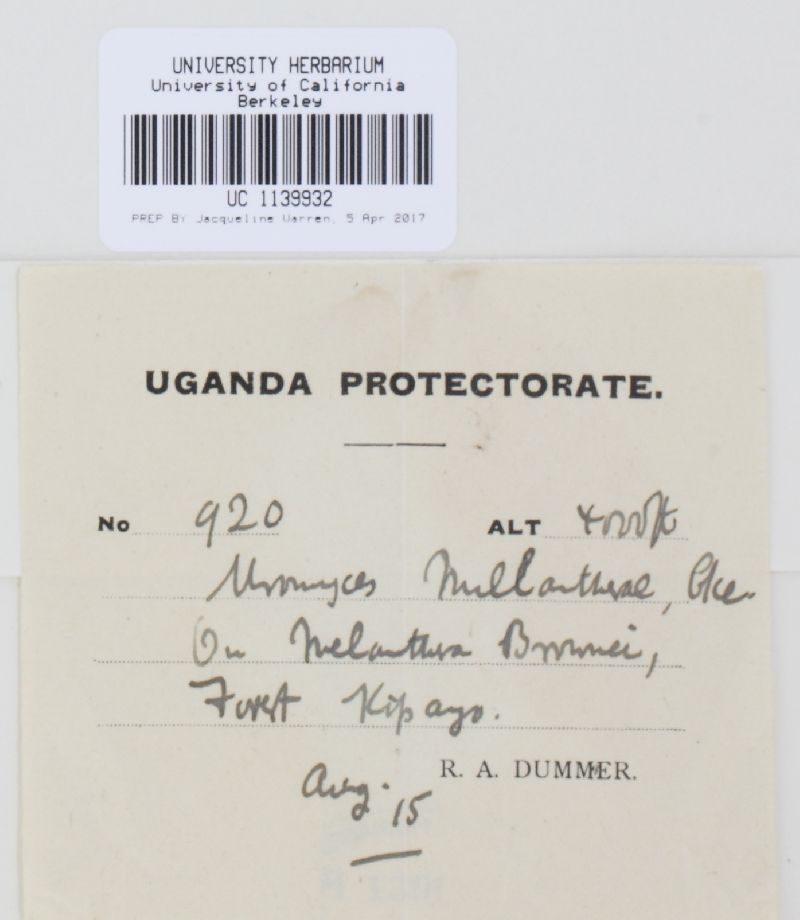 UNIVERSITY HERBARIUM
University of California
Berkeley
UC 1139932
PREP BY Jacqueline Warren, 5 Apr 2017
UGANDA PROTECTORATE.
No 920 ALT 4000ft
Uromyces Mellantherae, Cke.
On Melanthera Brownei,
Forest Kipayo.
R. A. DUMMER.
Aug. 15